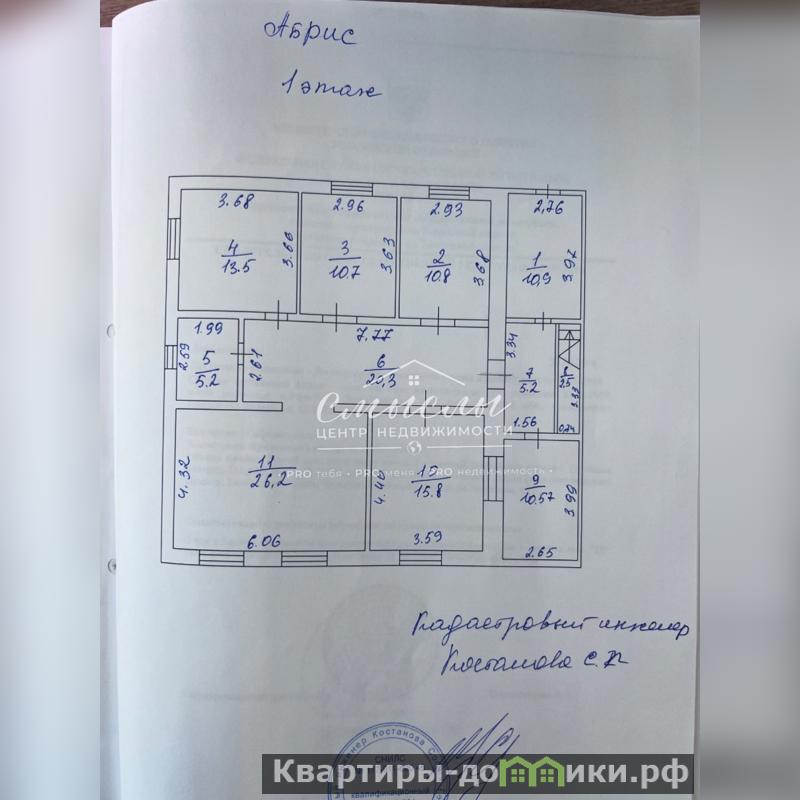 Абрис
1 этаж
3.68
2.96
2.93
2,76
4
13.5
3.66
3
10.7
3.63
2
10.8
3.68
1
10,9
3.97
1.99
2.59
5
5.2
2.61
7.77
6
20,3
3.34
7
5.2
1.56
8
2.5
3.33
0.74
СМЫСЛЫ
ЦЕНТР НЕДВИЖИМОСТИ
PRO тебя • PRO меня • PRO недвижимость •
4.32
11
26.2
6.06
4.40
10
15.8
3.59
9
10.57
3.99
2.65
Кадастровый инженер
Костанова С.
инженер Костанова
СНИЛС
квалификационный
Квартиры-домики.рф